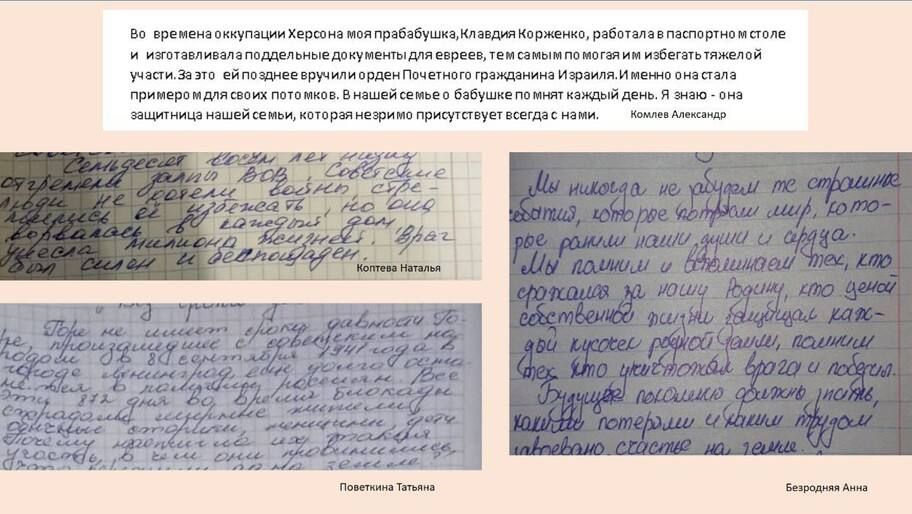 Во времена оккупации Херсона моя прабабушка,Клавдия Корженко, работала в паспортном столе
и изготавливала поддельные документы для евреев, тем самым помогая им избегать тяжелой
участи.За это ей позднее вручили орден Почетного гражданина Израиля.Именно она стала
примером для своих потомков. В нашей семье о бабушке помнят каждый день. Я знаю - она
защитница нашей семьи, которая незримо присутствует всегда с нами.
Комлев Александр
Семьдесят восем лет назад
отгремели залпы ВОВ. Советские
люди не хотели войны, стре-
мились её избежать, но она
ворвалась в каждый дом,
унесла милиона жизней. Враг
был силен и беспощаден.
Коптева Наталья
Горе не имеет срока давности. Го-
ре, произашедшее с советским на-
родом в 8 сентября 1941 года в
городе Ленинград еще долго оста-
нется в россиян. Все
эти 872 дня во время блокады
страдали мирные жители
старики, женщины, дети
Почему настигла их такая
участь, в чем они провинились
Поветкина Татьяна
Мы никогда не забудем те страшные
события, которые потрясли мир, кото-
рые ранили наши души и сердца.
Мы помним и вспоминаем тех, кто
сражался за нашу Родину, кто ценой
собственной жизни защищал каж-
дый кусочек родной земли, помним
тех кто уничтожал врага и победил.
Будущее поколение должны знать,
какими потерями и каким трудом
завоевано счастье на земле.
Безродняя Анна